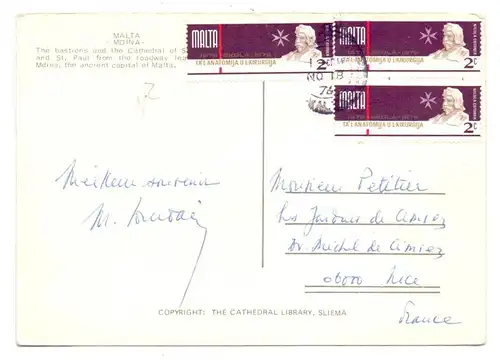 MALTA
- MDINA -
The bastions and the Cathedral of S
and St. Paul from the roadway
Mdina, the ancient capital of Malta.
MALTA
1676 SKOLA 1976
TA' L-ANATOMIJA U L-KIRURGIJA
2c
MALTA
1676 SKOLA 1976
TA' L-ANATOMIJA U L-KIRURGIJA
2c
MALTA
1676 SKOLA 1976
TA' L-ANATOMIJA U L-KIRURGIJA
2c
NO 18
76
Meilleur souvenir
M.
Monsieur Petitier
Les Jardins de Cimiez
Av. Michel de Cimiez
06000 Nice
France
COPYRIGHT: THE CATHEDRAL LIBRARY, SLIEMA